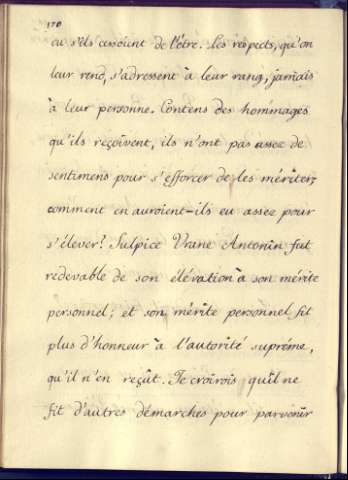 170
ou s'ils cessoient de l'être. Les respects, qu'on
leur rend, s'adressent à leur rang, jamais
à leur personne. Contens des hommages
qu'ils reçoivent, ils n'ont pas assez de
sentimens pour s'efforcer de les mériter;
comment en auroient-ils eu assez pour
s'élever? Sulpice Urane Antonin fut
redevable de son élévation à son mérite
personnel; et son mérite personnel fit
plus d'honneur à l'autorité suprême,
qu'il n'en reçût. Je croirois qu'il ne
fit d'autres démarches pour parvenir